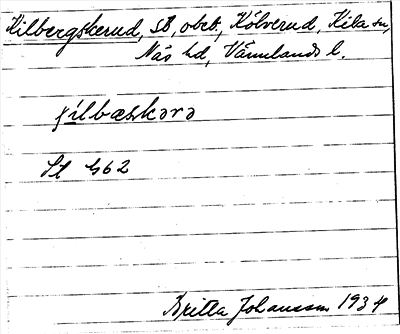 Kilbergskerud, sb, obeb., Kölverud, Kila sn,
Näs hd, Värmlands l.
çílbæskərə
St 462
Britta Johansson 1934